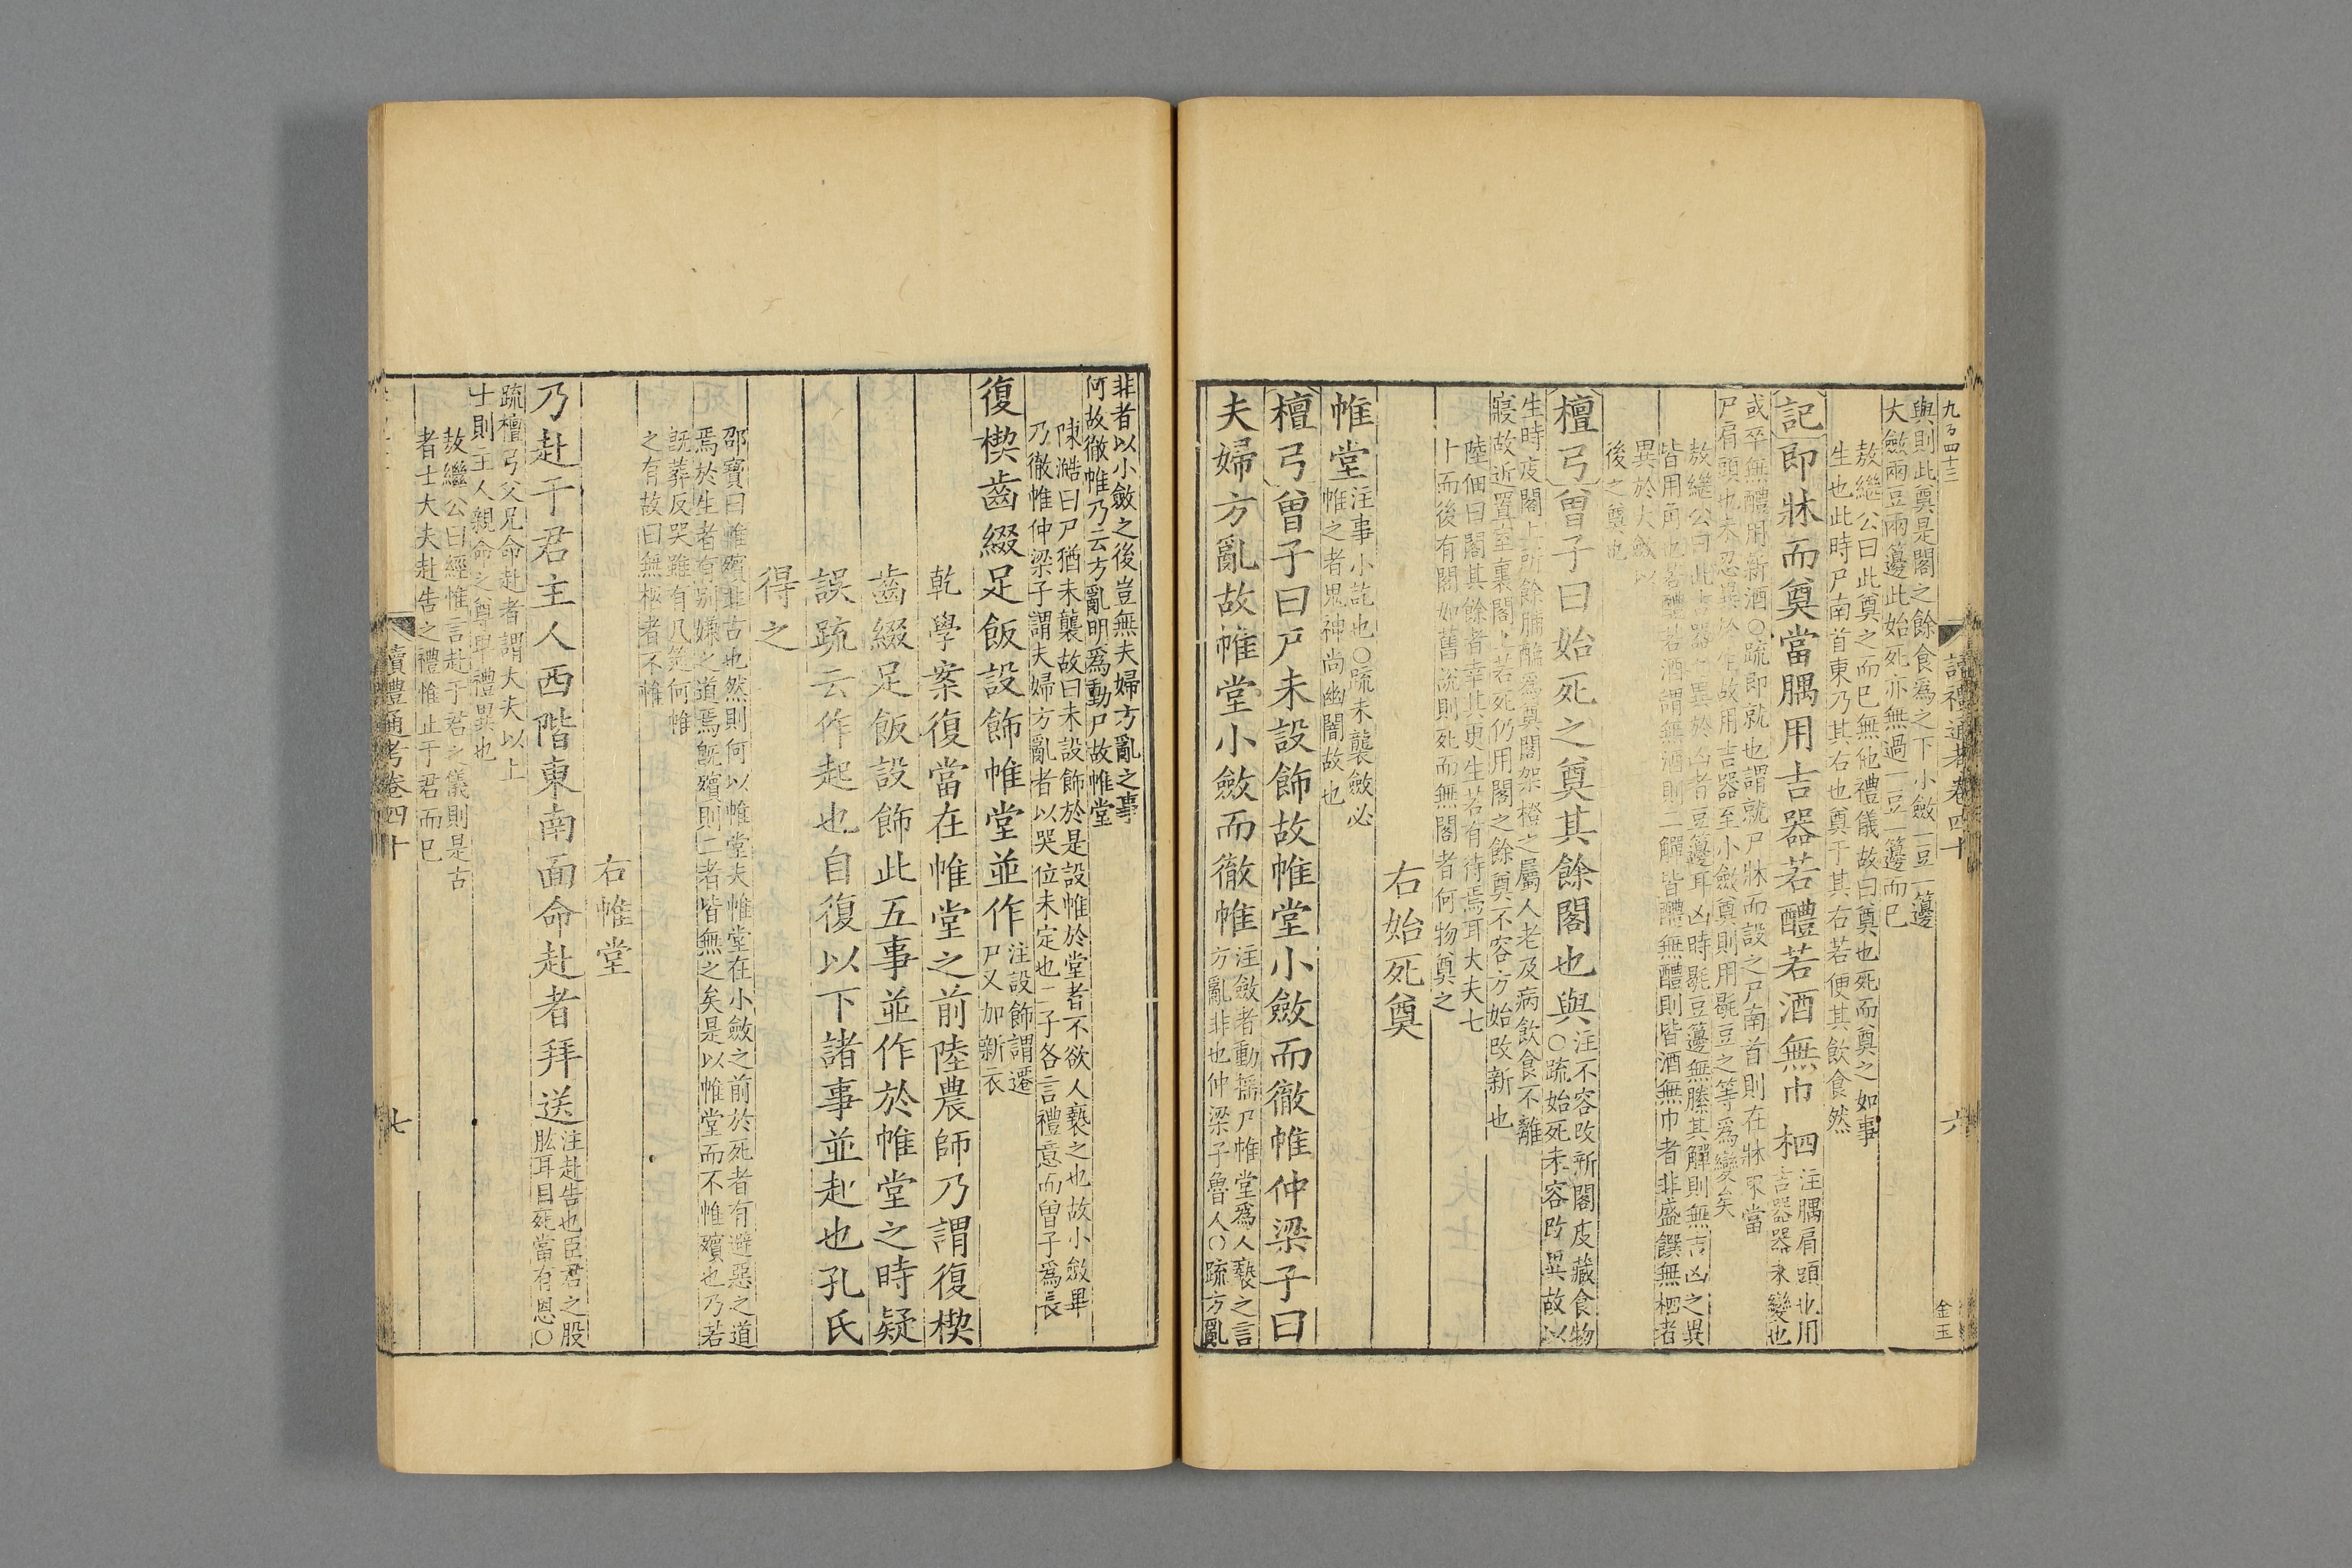 九百四十三
讀禮通考卷四十
六
金玉
與則此奠是閣之餘食爲之下小斂一豆一籩
大斂兩豆兩籩此始死亦無過一豆一籩而已
敖繼公曰此奠之而已無他禮儀故曰奠也死而奠之如事
生也此時尸南首東乃其右也奠于其右若便其飲食然
記即牀而奠當腢用吉器若醴若酒無巾柶
注腢肩頭也用
吉器器未變也
或卒無醴用新酒○疏即就也謂就尸牀而設之尸南首則在牀東當
尸肩頭也未忍異於生故用吉器至小斂奠則用毼豆之等爲變矣
敖繼公曰此吉器之異於凶者豆籩耳凶時毼豆籩無縢其觶則無吉凶之異
皆用角也若醴若酒謂無酒則二觶皆醴無醴則皆酒無巾者非盛饌無柶者
異於大斂以
後之奠也
檀弓曾子曰始死之奠其餘閣也與
注不容改新閣庋藏食物
○疏始死未容改異故以
生時庋閣上所餘脯醢爲奠閣架橙之屬人老及病飲食不離
寢故近置室裏閣上若死仍用閣之餘奠不容方始改新也
陸佃曰閣其餘者幸其更生若有待焉耳大夫七
十而後有閣如舊說則死而無閣者何物奠之
右始死奠
帷堂
注事小訖也○疏未襲斂必
帷之者鬼神尚幽闇故也
檀弓曾子曰尸未設飾故帷堂小斂而徹帷仲梁子曰
夫婦方亂故帷堂小斂而徹帷
注斂者動搖尸帷堂爲人褻之言
方亂非也仲梁子魯人○疏方亂
非者以小斂之後豈無夫婦方亂之事
何故徹帷乃云方亂明爲動尸故帷堂
陳澔曰尸猶未襲故曰未設飾於是設帷於堂者不欲人褻之也故小斂畢
乃徹帷仲梁子謂夫婦方亂者以哭位未定也二子各言禮意而曾子爲長
復楔齒綴足飯設飾帷堂並作
注設飾謂遷
尸又加新衣
乾學案復當在帷堂之前陸農師乃謂復楔
齒綴足飯設飾此五事並作於帷堂之時疑
誤疏云作起也自復以下諸事並起也孔氏
得之
邵寶曰帷殯非古也然則何以帷堂夫帷堂在小斂之前於死者有避惡之道
焉於生者有別嫌之道焉既殯則二者皆無之矣是以帷堂而不帷殯也乃若
既葬反哭雖有几筵何帷
之有故曰無柩者不帷
右帷堂
乃赴于君主人西階東南面命赴者拜送
注赴告也臣君之股
肱耳目死當有恩○
疏檀弓父兄命赴者謂大夫以上
士則主人親命之尊卑禮異也
敖繼公曰經惟言赴于君之儀則是古
者士大夫赴告之禮惟止于君而已
讀禮通考卷四十
七